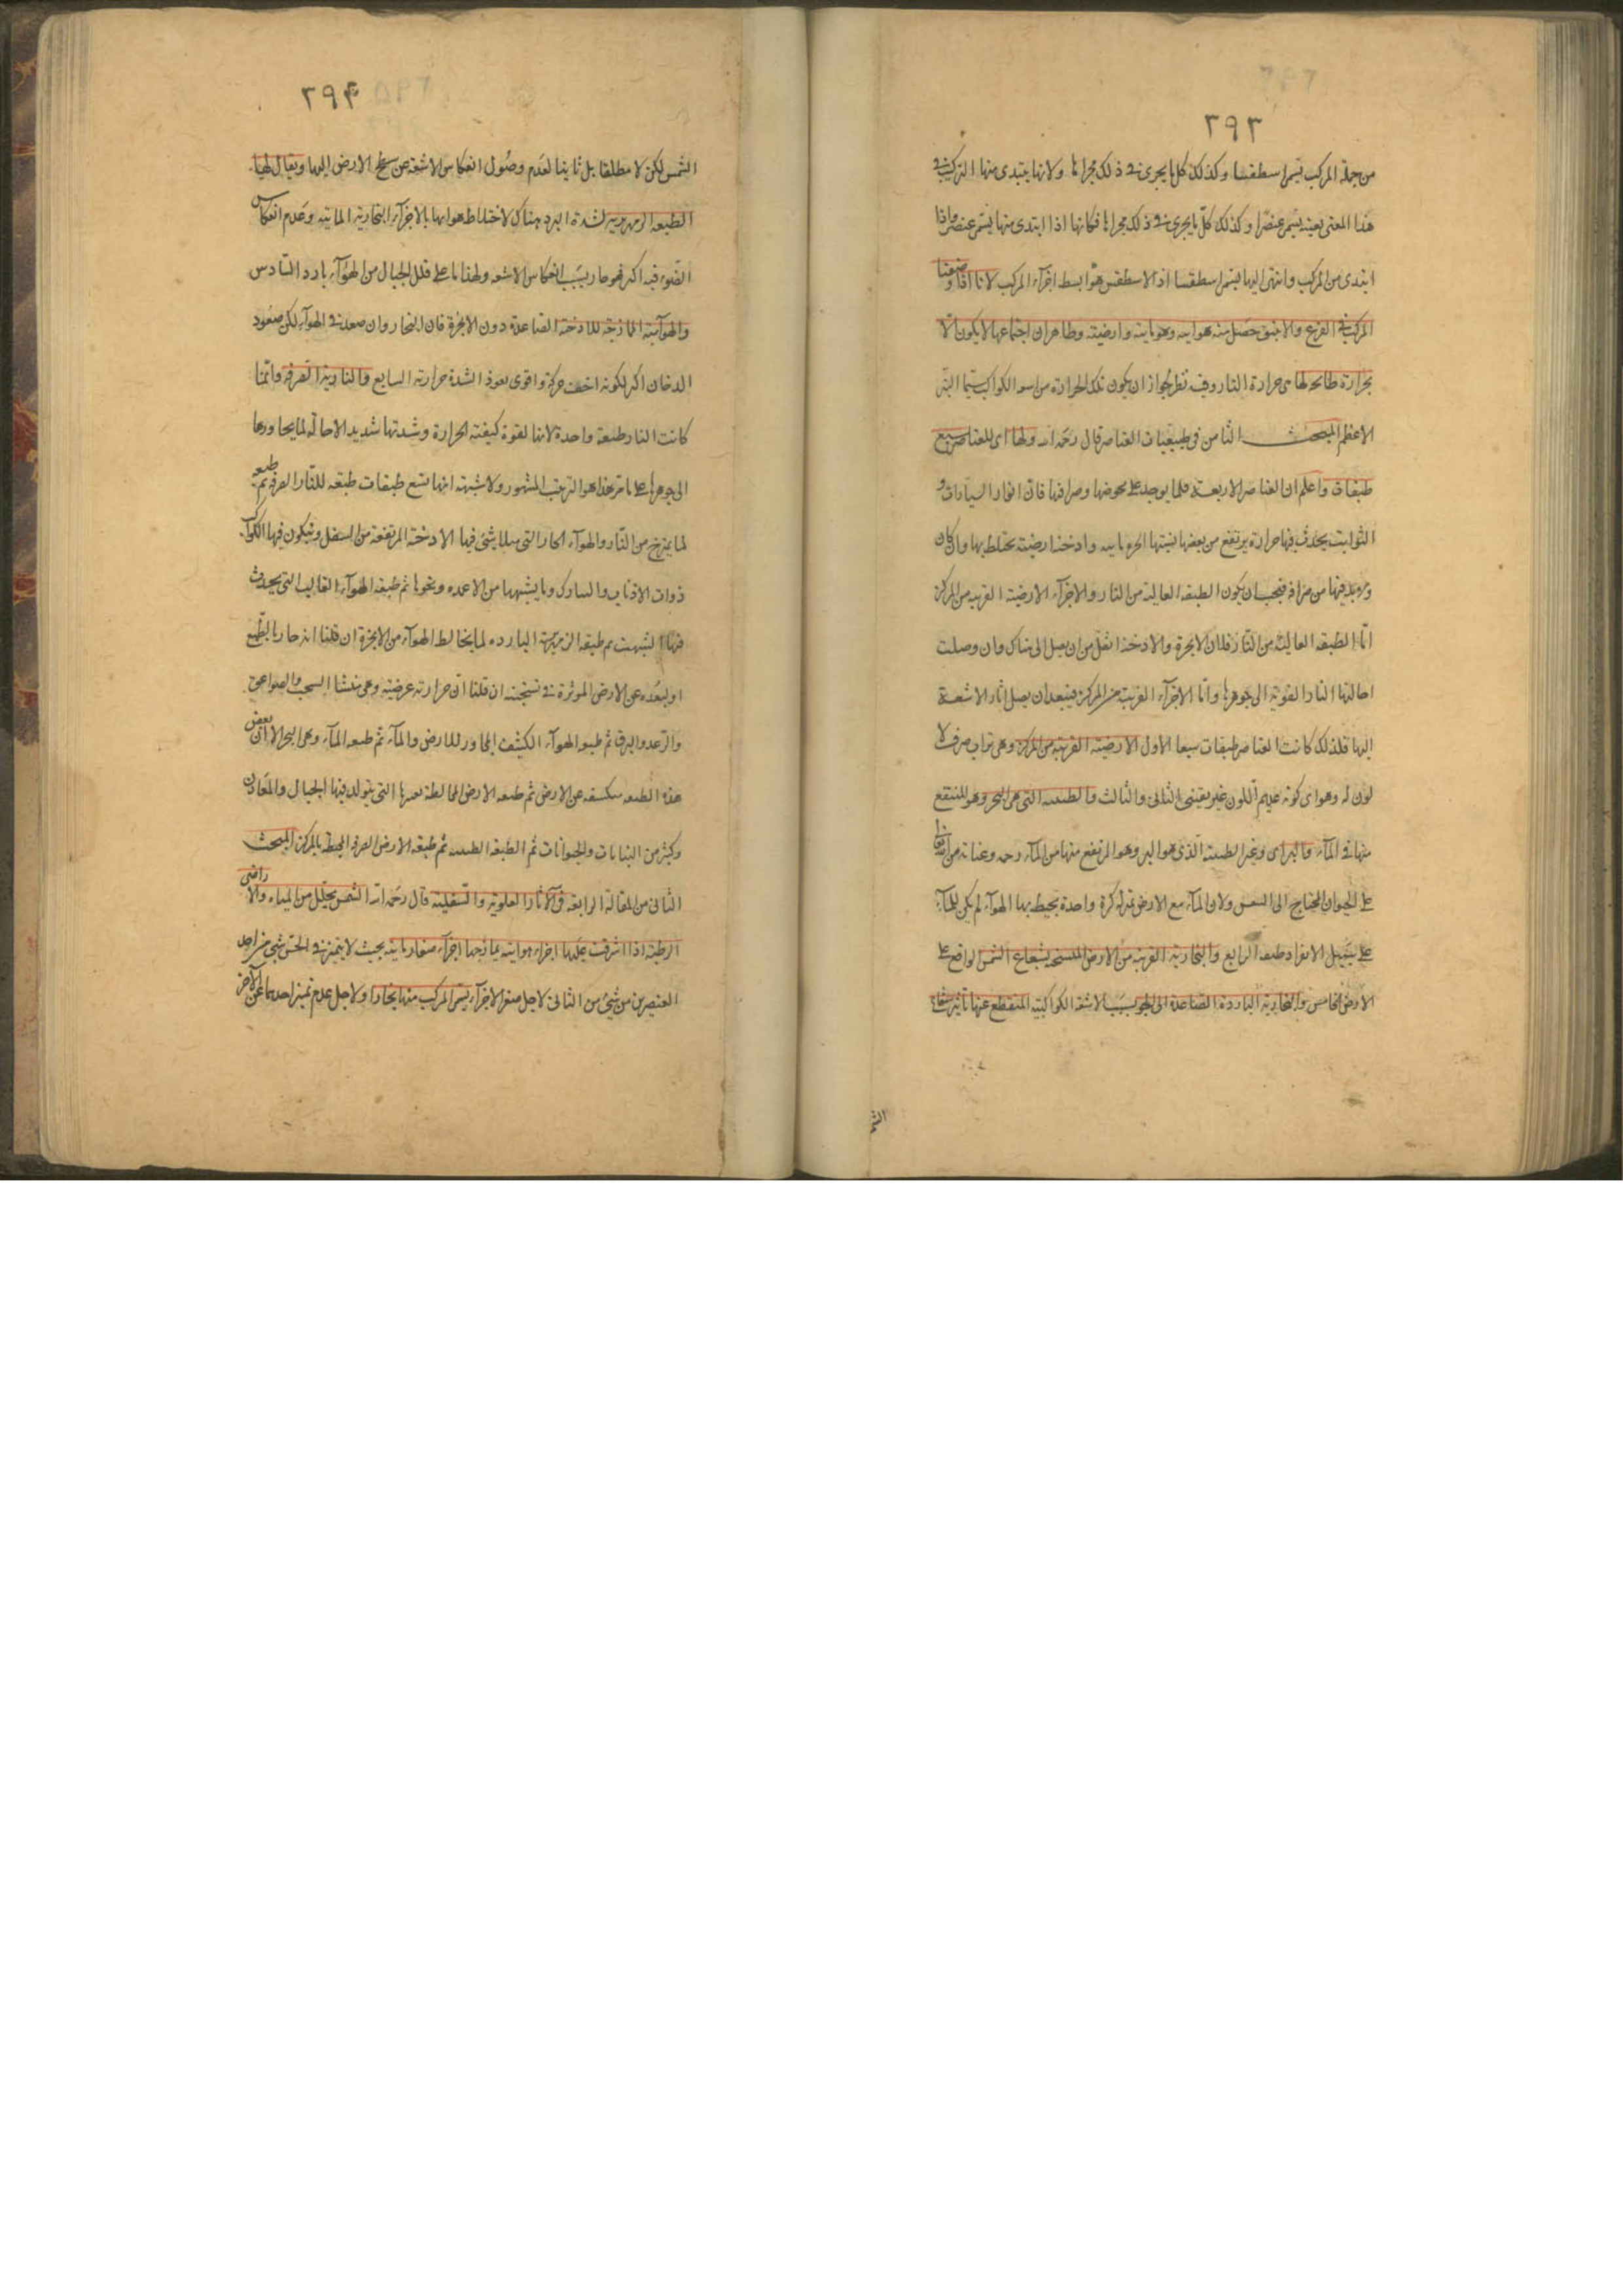 ٢٩٣
من جملة المركب يسمى اسطقسا وكذلك كل ما يجرى فى ذلك مجراها ولانها يبتدى منها التركيب فى
هذا المعنى بعينه يسمى عنصرا وكذلك كل ما يجرى فى ذلك مجراها فكانها اذا ابتدى منها يسمى عنصرا واذا
ابتدى من المركب وانتهى اليها يسمى اسطقسا اذ الاسطقس هو ابسط اجزآء المركب لانا اذا وضعنا
المركب فى القرع والانبيق حصل منه هوائيه ومائية وارضية وظاهر ان اجتماعها لا يكون الا
بحرارة طابخة لها هى حرارة النار وفيه نظر لجواز ان يكون تلك الحرارة من الكواكب سيما النير
الاعظم المبحث الثامن فى طبقات العناصر قال رحمه الله ولها اى للعناصر سبع
طبقات واعلم ان العناصر الاربعة قلما يوجد على محوضها وصرافتها فان انوار السيارات و
الثوابت يحدث فيها حرارة يرتفع من بعضها بسببها ابخرة مائيه وادخنة ارضية يختلط بها وان كان
ولا بد فيها من صرافة فيجب ان يكون الطبقه العالية من النار والاجزآء الارضية القريبه من المركز
اما الطبقه العالية من النار فلان الابخرة والادخنة اثقل من ان يصل الى هناك وان وصلت
احالتها النار القوية الى جوهرها واما الاجزآء القريبة من المركز فيبعد ان يصل اثار الاشعة
اليها فلذلك كانت العناصر طبقات سبعا الاول الارضية القريبة من المركز وهى تراب صرف لا
لون له وهو اى كونه عديم اللون غير يقينى الثانى والثالث والطينية التى هى البحر وهو المنتقع
منها فى المآء والبر اى وغير الطينية الذى هو البر وهو المرتفع منها من المآء رحمة وعناية من الله تعالى
على الحيوان المحتاج الى التنفس ولان المآء مع الارض بمنزلة كرة واحدة يحيط بها الهوآء لم يكن للمآء
على سبيل الانفراد طبقه الرابع والبخارية القريبة من الارض المتسخنة بشعاع الشمس الواقع على
الارض الخامس والبخارية الباردة الصاعدة الى الجو بسبب الاشعة الكواكبية المنقطع عنها تاثير شعاع
٢٩٤
الشمس لكن لا مطلقا بل ثانيا لعدم وصول انعكاس الاشعة عن سطح الارض اليها ويقال لها
الطبقه الزمهريرية لشدة البرد هناك لاختلاط هوائها بالاجزآء البخارية المائية وعدم انعكاس
الضوء فيه اكثر فهو حار بسبب انعكاس الاشعة ولهذا ما على قلل الجبال من الهوآء بارد السادس
والهوآئية الممازجة للادخنة الصاعدة دون الابخرة فان البخار وان صعد فى الهوآء لكن صعود
الدخان اكثر لكونه اخف حركة واقوى نفوذا لشدة حرارته السابع والنارية الصرفة وانما
كانت النار طبقة واحدة لانها لقوة كيفية الحرارة وشدتها شديد الاحالة لما يجاورها
الى جوهرها على ما مر هذا هو الترتيب المشهور ولا شبهة انها تسع طبقات طبقه للنار الصرفة ثم طبقه
لما يمتزج من النار والهوآء الحار التى يتلاشى فيها الادخنة المرتفعة من السفل ويتكون فيها الكواكب
ذوات الاذناب والنيازك وما يشبهها من الاعمدة ونحوها ثم طبقه الهوآء الغالب التى يحدث
فيها الشهب ثم طبقه الزمهرير البارده لما يخالط الهوآء من الابخرة ان قلنا انه حار بالطبع
او لبعده عن الارض الموثرة فى تسخينه ان قلنا ان حرارته عرضية وهى منشا السحب والصواعق
والرعد والبرق ثم طبقه الهوآء الكثيف المجاور للارض والمآء ثم طبقه المآء وهى البحر الا ان بعض
هذه الطبقه منكشفه عن الارض ثم طبقه الارض المخالطة لغيرها التى يتولد فيها الجبال والمعادن
وكثير من النباتات والحيوانات ثم الطبقه الطينيه ثم طبقه الارض الصرفة المحيطة بالمركز المبحث
الثانى من المقالة الرابعة فى الآثار العلوية والسفلية قال رحمه الله الشمس يحلل من المياه والاراضى
الرطبة اذا اشرقت عليها اجزاء هوائيه يمازجها اجزآء صغار مائيه بحيث لا يتميز فى الحس شيئ من احد
العنصرين من شيئ من الثانى لاجل صغر الاجزآء يسمى المركب منها بخارا ولاجل عدم تميز احدهما عن الآخر